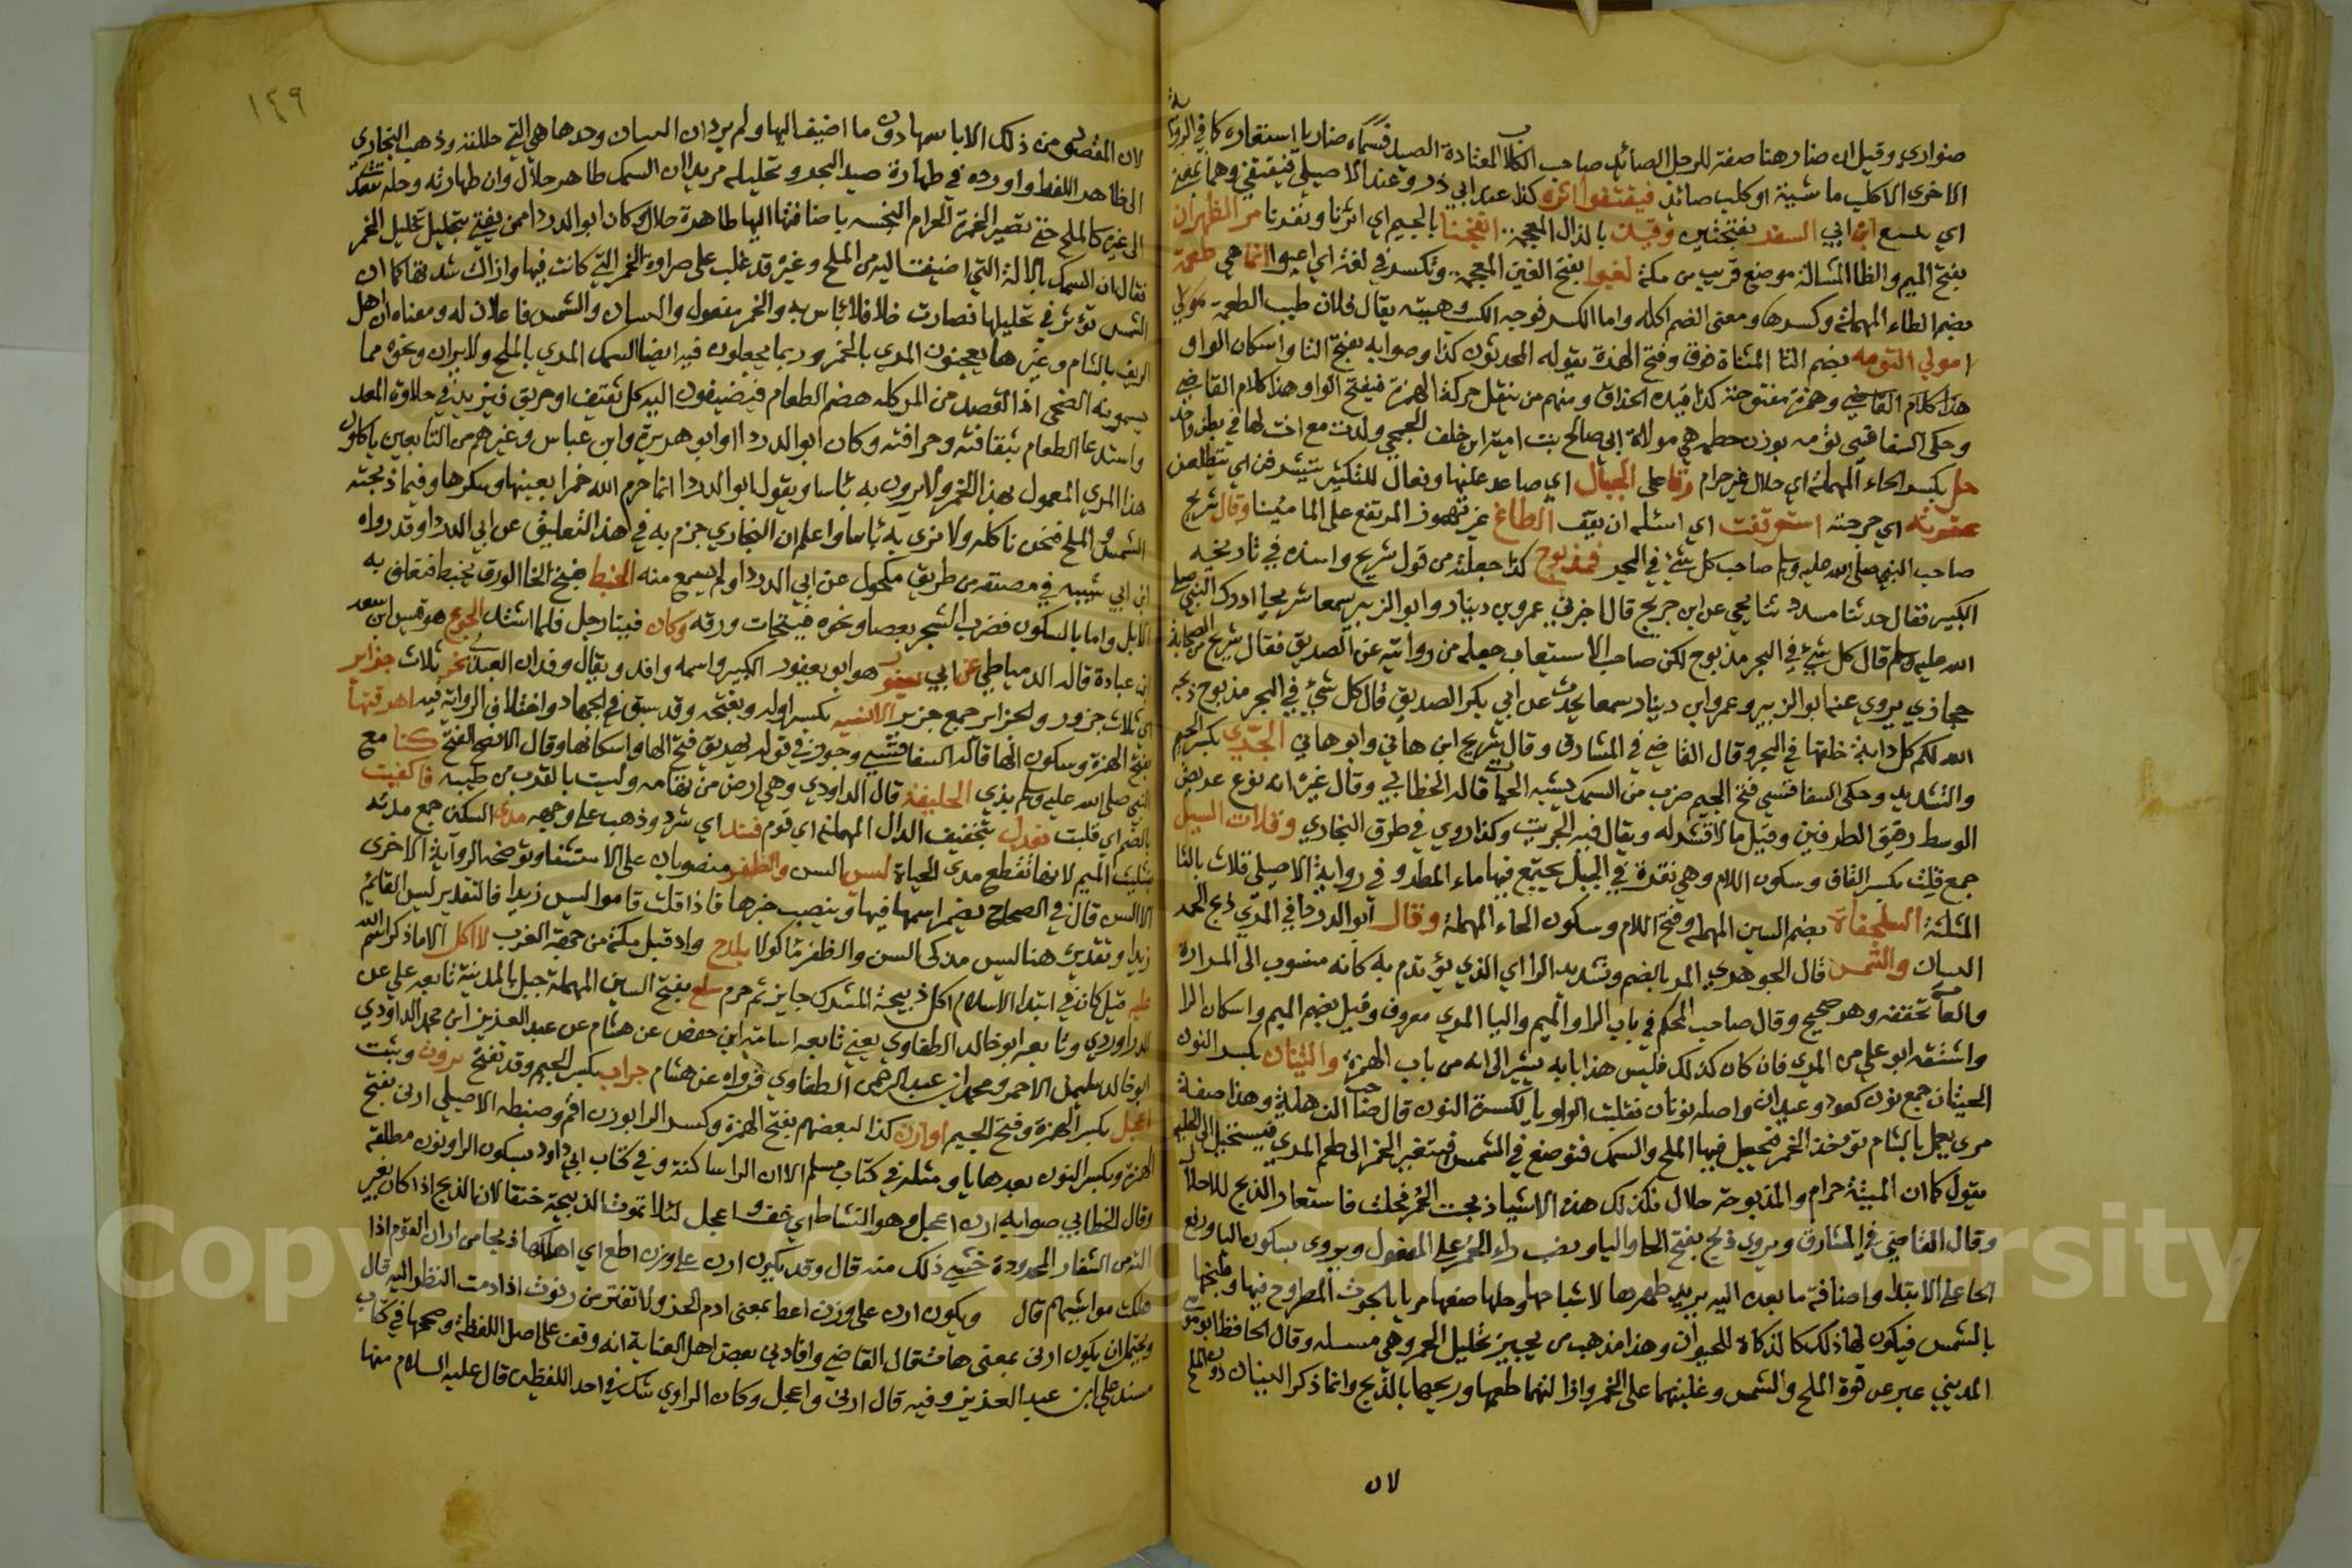 صنواري وقيل ان ضار هنا صفة للرجل الصائد صاحب الكلاب المعتادة الصيد فسماه ضاريا استعارة كما في الرواية
الاخرى الا كلب ماشية او كلب صائد فيقتفوا اثره كذا عند ابي ذر وعند الاصيلي فيقتفي وهما بمعنى
اي يتبع ابن ابي السفر بفتحتين وقيذ بالذال المعجمة انفجنا بالجيم اي اثرنا ونفرنا مر الظهران
بفتح الميم والظا المشالة موضع قريب من مكة لغبوا بفتح الغين المعجمة وتكسر في لغة اي اعيوا انما هي طعمة
بضم الطاء المهملة وكسرها ومعنى الضم اكله واما الكسر فوجه الكسب وهيئته يقال فلان طيب الطعمة مولى
امولي التومه بضم التا المثناة فوق وفتح الهمزة يقوله المحدثون كذا وصوابه بفتح التا واسكان الواو
هذا كلام القاضي وهمزة مفتوحة كذا قيده الحذاق ومنهم من ينقل حركة الهمزة فيفتح الواو هذا كلام القاضي
وحكى السفاقسي تؤمه بوزن حطمه هي مولاة ابي صالح بنت امية ابن خلف الجمحي ولدت مع اخت لها في بطن واحد
حل بكسر الحاء المهملة اي حلال غير حرام رقا على الجبال اي صاعد عليها وفعال للتكثير يتشرفن اي يتطلعن
عقرته اي جرحته استوقفت اي اسئله ان يقف الطاغ غير مهموز المرتفع على الما ميتا وقال شريح
صاحب النبي صلى الله عليه وسلم صاحب كل شئ في البحر فمذبوح كذا جعله من قول شريح واسنده في تاريخه
الكبير فقال حدثنا مسدد ثنا يحيى عن ابن جريج قال اخبرني عمرو بن دينار وابو الزبير سمعا شريحا ادرك النبي صلى
الله عليه وسلم قال كل شئ في البحر مذبوح لكن صاحب الاستيعاب جعله من روايته عن الصديق فقال شريح من الصحابة
حجازي يروي عنه ابو الزبير وعمرو ابن دينار سمعا يحدث عن ابي بكر الصديق قال كل شئ في البحر مذبوح ذبحه
الله لكم كل دابة خلقها في البحر وقال القاضي في المشارق وقال شريح ابن هاني وابو هاني الجري بكسر الجيم
والتشديد وحكى السفاقسي فتح الجيم ضرب من السمك يشبه الحيات قاله الخطابي وقال غيره انه نوع عريض
الوسط رقيق الطرفين وقيل ما لا قشر له ويقال فيه الجريت وكذا روي في طرق البخاري وقلات السيل
جمع قلت بكسر القاف وسكون اللام وهي نقرة في الجبل يجتمع فيها ماء المطر وفي رواية الاصيلي قلاث بالثا
المثلثة السلحفاة بضم السين المهملة وفتح اللام وسكون الحاء المهملة وقال ابو الدردا في المري ذبح الخمر
النينان والشمس قال الجوهري المر بالضم وتشديد الرا اي الذي يؤتدم به كانه منسوب الى المرارة
والعامة تخففه وهو صحيح وقال صاحب المحكم في باب الرا والميم واليا المري معروف وقيل بضم الميم واسكان الرا
واشتقه ابو علي من المري فان كان كذلك فليس هذا بابه يشير الى انه من باب الهمزة والنينان بكسر النون
الحيتان جمع نون كعود وعيدان واصله نونان فقلبت الواو يا لكسرة النون قال صاحب النهاية وهذا صفة
مري يعمل بالشام تؤخذ الخمر فيجعل فيها الملح والسمك فتوضع في الشمس فيتغير الخمر الى طعم المري فيستحيل الى الخلية
يقول كما ان الميتة حرام والمذبوحة حلال فكذلك هذه الاشيا ذبحت الخمر فحلت فاستعار الذبح للاحلال
وقال القاضي في المشارق ويروى ذبح بفتح الحا والبا ونصب راء الخمر على المفعول ويروى بسكون البا ورفع
الحا على الابتدا واضافة ما بعده اليه يريد طهرها لاستباحها وحلها صنعها مريا بالحوت المطروح فيها وطبخها
بالشمس فيكون لها ذلك كالذكاة للحيوان وهذا مذهب من يجيز تخليل الخمر وهي مسئلة وقال الحافظ ابو موسى
المديني عبر عن قوة الملح والشمس وغلبتهما على الخمر وازالتهما طعمها وريحها بالذبح وانما ذكر النينان دون الملح
لان
١٤٩
لان المقصود من ذلك الا باسمها دون ما اضيف اليها ولم يرد ان النينان وحدها هي التي حللته وذهب البخاري
الى ظاهر اللفظ واورده في طهارة صيد البحر وتحليله مريدا ان السمك طاهر حلال وان طهارته وحله يتعدى
الى غيره كالملح حتى تصير الخمرة الحرام النجسة باضافتها اليها طاهرة حلالا وكان ابو الدردا ممن يفتي بتحليل تخليل الخمر
فقال ان السمك بالالة التي اضيفت اليه من الملح وغيره قد غلب على ضراوة الخمر التي كانت فيها وازال شدتها كما ان
الشمس تؤثر في تخليلها فصارت خلا فلا باس به والخمر مفعول والنينان والشمس فاعلان له ومعناه ان اهل
الريف بالشام وغيرها يعجنون المري بالخمر وربما يجعلون فيه ايضا السمك المري بالملح والابزار ونحوه مما
يسمونه الصحنى اذ القصد من المر كله هضم الطعام فيضيفون اليه كل ثقيف او حريق فيزيد في حلاوة المعد
واستدعا الطعام بثقافته وحرافته وكان ابو الدردا وابو هريرة وابن عباس وغيرهم من التابعين ياكلون
هذا المري المعمول بهذا الخمر ولا يرون به باسا ويقول ابو الدردا انما حرم الله خمرا بعينها وسكرها وفيما ذبحته
الشمس والملح فنحن ناكله ولا نرى به باسا واعلم ان البخاري جزم به في هذا التعليق عن ابي الدردا وقد رواه
ابن ابي شيبه في مصنفه من طريق مكحول عن ابي الدردا ولم يسمع منه الخبط بفتح الخا الورق يخبط فتعلف به
الابل واما بالسكون فضرب الشجر بعصا ونحوه فيتحات ورقه وكان فينا رجل فلما اشتد الجوع هو قيس ابن سعد
ابن عبادة قاله الدمياطي عن ابي يعفور هو ابو يعفور الكبير واسمه وافد ويقال وقدان العبدي نحر ثلاث جزاير
اي ثلاث جزور والجزاير جمع جزير الانسيه بكسر اوله وبفتحه وقد سبق في الجهاد واختلاف الرواية فيه اهرقتها
بفتح الهمزة وسكون الها قاله السفاقسي وجوز في قوله يهريق فتح الها واسكانها وقال الافصح الفتح كنا مع
النبي صلى الله عليه وسلم بذي الحليفة قال الداودي وهي ارض من تهامه وليست بالقرب من طيبه فاكفيت
بالضم اي قلبت فعدل بتخفيف الدال المهملة اي قوم فند اي شرد وذهب على وجهه مدى السكين جمع مدية
مثلث الميم لانها تقطع مدى الحياة ليس السن والظفر منصوبان على الاستثنا وتوضحه الرواية الاخرى
الا السن قال في الصحاح يضم اسمها فيها وينصب خبرها فاذا قلت قاموا ليس زيدا فالتقدير ليس القائم
زيدا وتقديره هنا ليس مذكى السن والظفر ماكولا بلدح واد قبل مكة من جهة الغرب لا اكل الا ما ذكر اسم الله
عليه قيل كان في ابتدا الاسلام اكل ذبيحة المشرك جايز ثم حرم سلع بفتح السين المهملة جبل بالمدينة تابعه علي عن
الدراوردي وتابعه ابو خالد الطفاوي يعني تابعه اسامة ابن حفص عن هشام عن عبد العزيز ابن محمد الداودي
ابو خالد سليمن الاحمر ومحمد ابن عبد الرحمن الطفاوي فرواه عن هشام جراب بكسر الجيم وقد تفتح يرون ويثبت
اعجل بكسر الهمزة وفتح الجيم او ارن كذا لبعضهم بفتح الهمزة وكسر الرا بوزن اقم وضبطه الاصيلي ارني بفتح
الهمزة وبكسر النون بعدها يا ومثله في كتاب مسلم الا ان الرا ساكنة وفي كتاب ابي داود بسكون الرا ونون مطلقة
وقال الخطابي صوابه ارن اعجل وهو النشاط اي خف واعجل لئلا تموت الذبيحة خنقا لان الذبح اذا كان بغير
الشفار المحدودة خشي ذلك منه قال وقد يكون ارن على وزن اطع اي اهلكها ذبحا من اران القوم اذا
هلكت مواشيهم قال ويكون ارن على وزن اعط بمعنى ادم الحز ولا تفتر من رنوت اذا ادمت النظر اليه قال
ويحتمل ان يكون ارني بمعنى هات قال القاضي وافادني بعض اهل العناية انه وقف على اصل اللفظة وصححها في كتاب
مسند علي ابن عبد العزيز وفيه قال ارني واعجل وكان الراوي شك في احد اللفظين قال عليه السلام منهما
Copyright © King Saud University